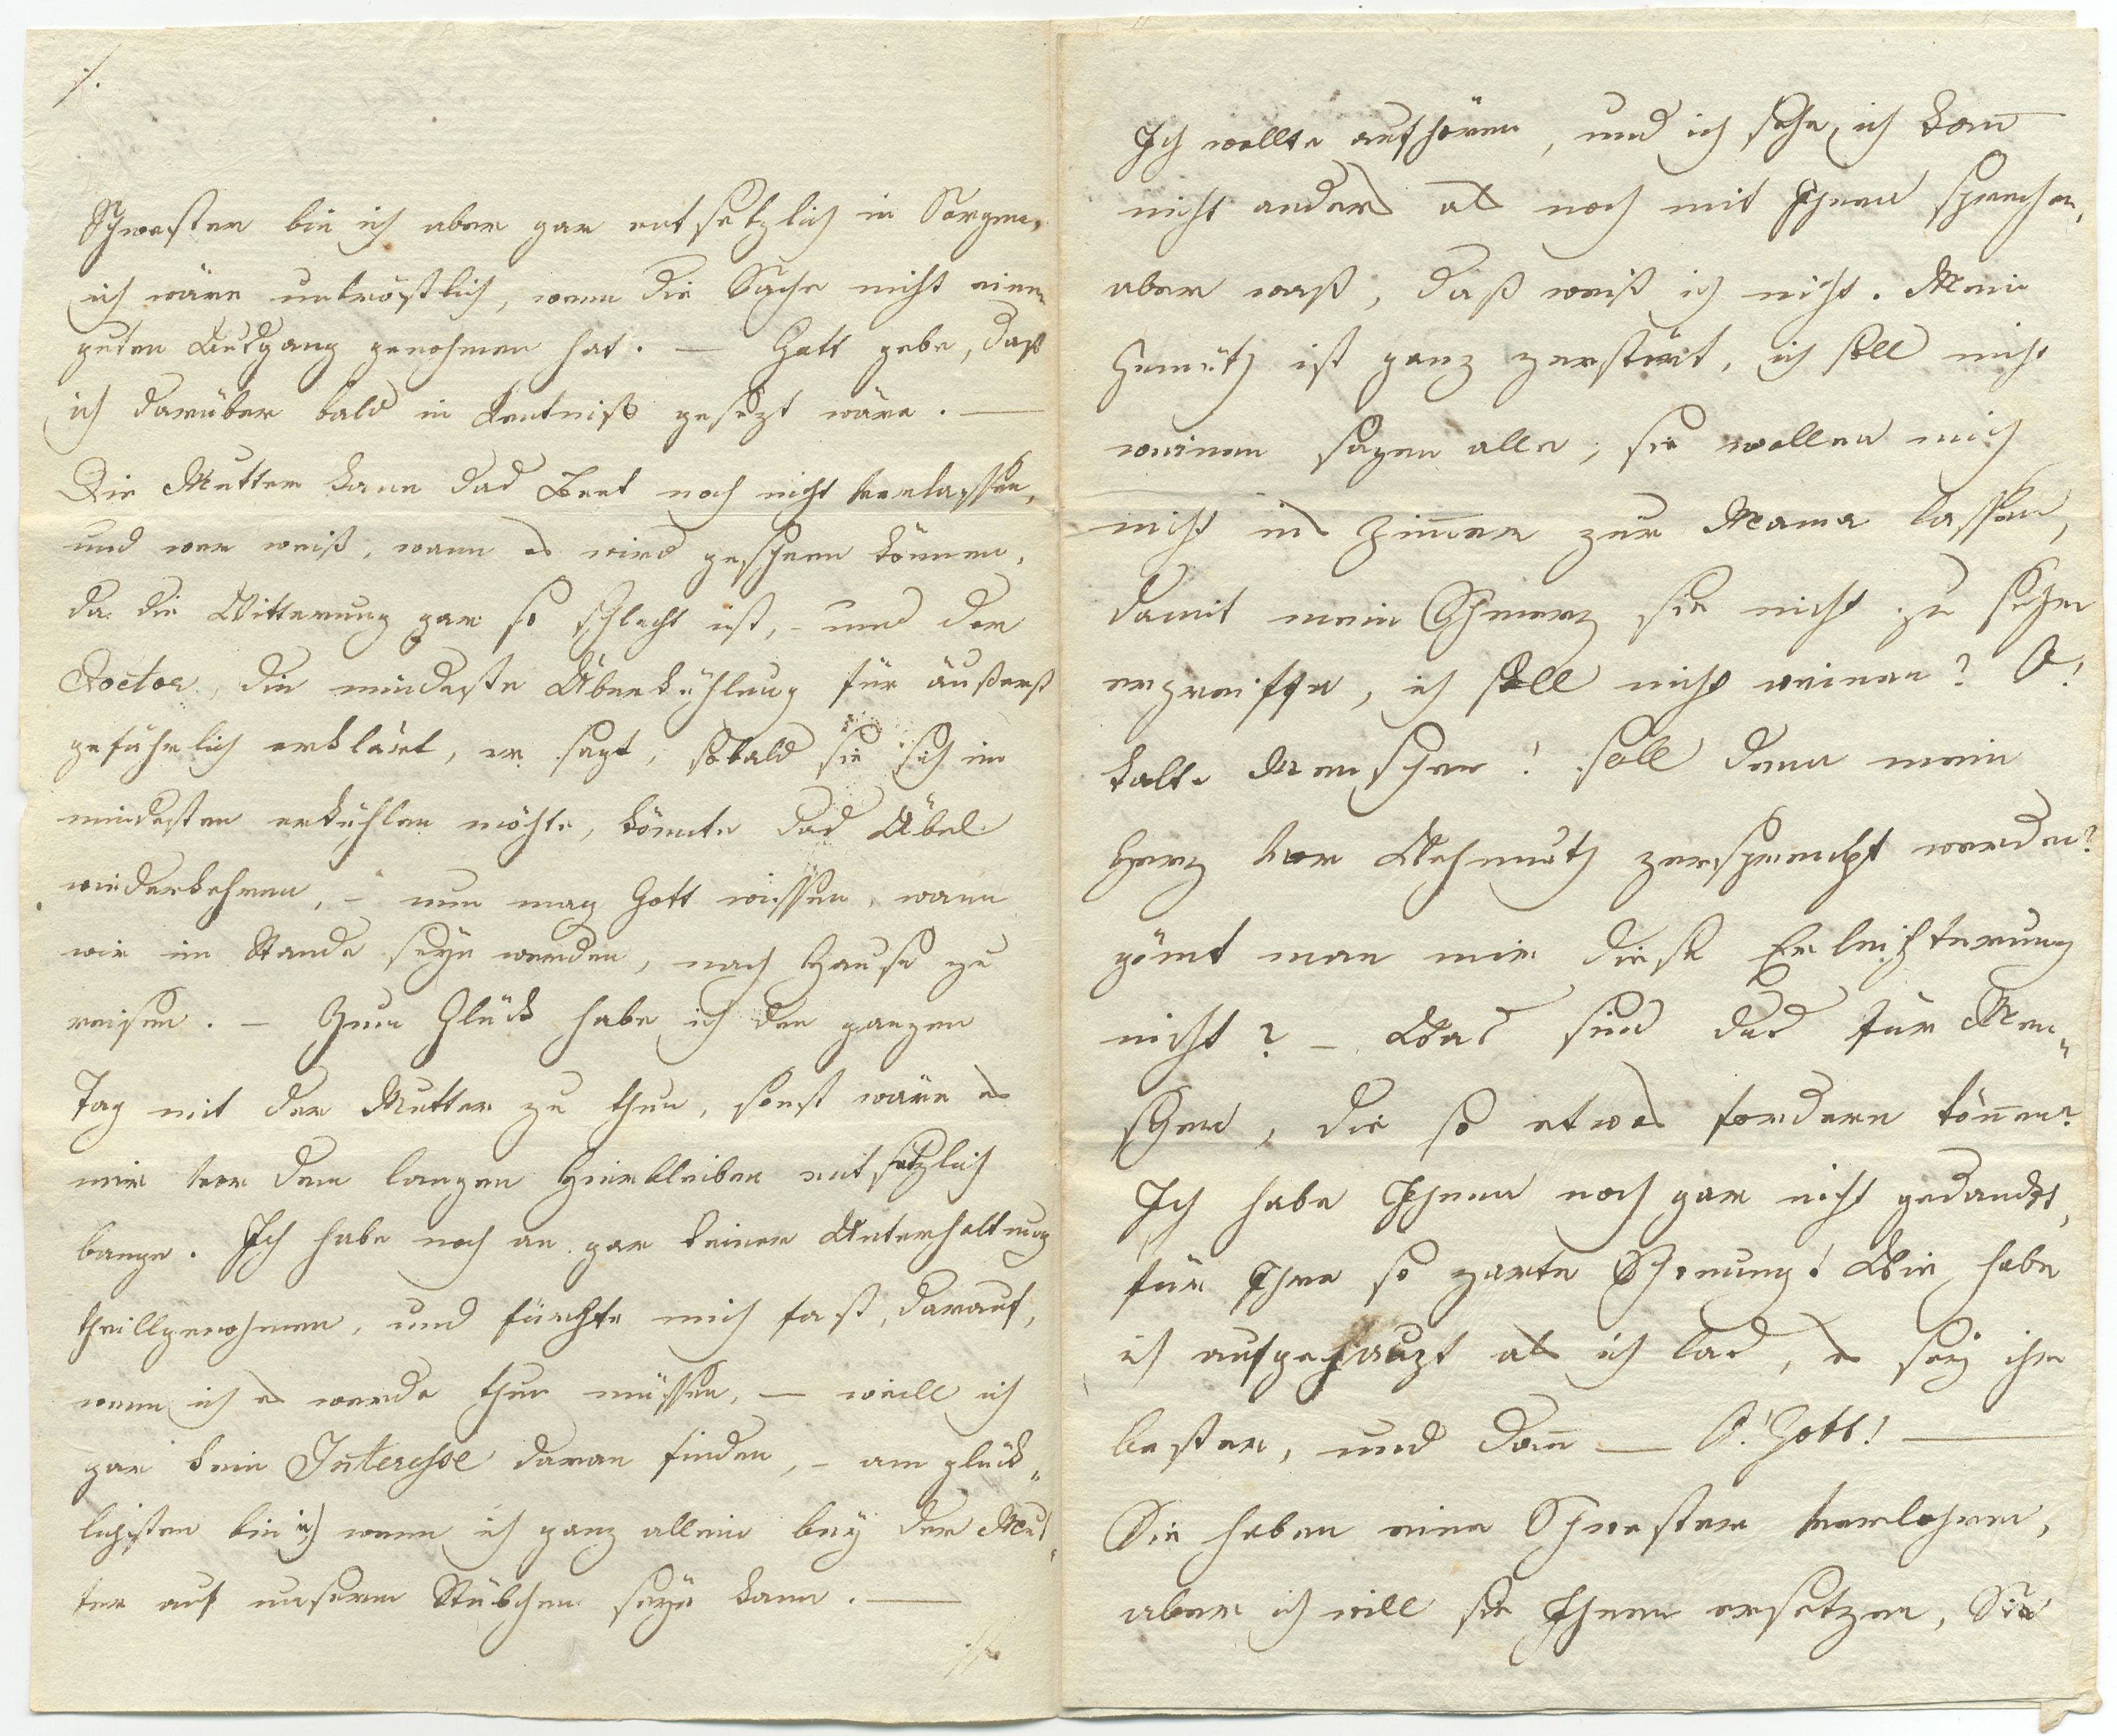 ./.
Schwester bin ich aber gar entsetzlich in Sorgen,
ich wäre untröstlich, wenn die Sache nicht einen
guten Ausgang genohmen hat. — Gott gebe, daß
ich darüber bald in Kentniß gesezt wäre. —
Die Mutter kann das Bett noch nicht verlassen,
und wer weiß, wann es wird geschehen können,
da die Witterung gar so schlecht ist, - und der
Doctor, die mindeste Überkühlung für äußerst
gefährlich erklärt, er sagt, sobald sie sich im
mindesten erkühlen möchte, könnte das Übel
wiederkehren, - nun mag Gott wissen, wann
wir im Stande seyn werden, nach Hause zu
reisen. - Zum Glück habe ich den ganzen
Tag mit der Mutter zu thun, sonst wäre es
mir vor dem langen Hierbleiben entsetzlich
bange. Ich habe noch an gar keiner Unterhaltung
theillgenohmen, und fürchte mich fast, darauf,
wenn ich es werde thun müssen, — weill ich
gar kein Interesse daran finden, - am glück„
lichsten bin ich wenn ich ganz allein bey der Mut„
ter auf unserm Stübchen seyn kann. —
./.
Ich wollte aufhören, und ich sehe, ich kann
nicht anders als noch mit Ihnen sprechen,
aber waß, daß weiß ich nicht. Mein
Gemüth ist ganz zerstört, ich soll nicht
weinen sagen alle, sie wollen mich
nicht ins Zimmer zur Mama lassen,
damit mein Schmerz sie nicht zu sehr
ergreiffe, ich soll nicht weinen? O!
kalte Menschen! soll denn mein
Herz vor Wehmuth zersprengt werden?
gönt man mir diese Erleichterung
nicht? - Was sind das für Men„
schen, die so etwas fordern können?
Ich habe Ihnen noch gar nicht gedankt,
für Ihre so zarte Schonung! Wie habe
ich aufgejauzt als ich las, es sey ihr
besser, und dann — O! Gott! —
Sie haben eine Schwester verlohren,
aber ich will sie Ihnen ersetzen, Sie